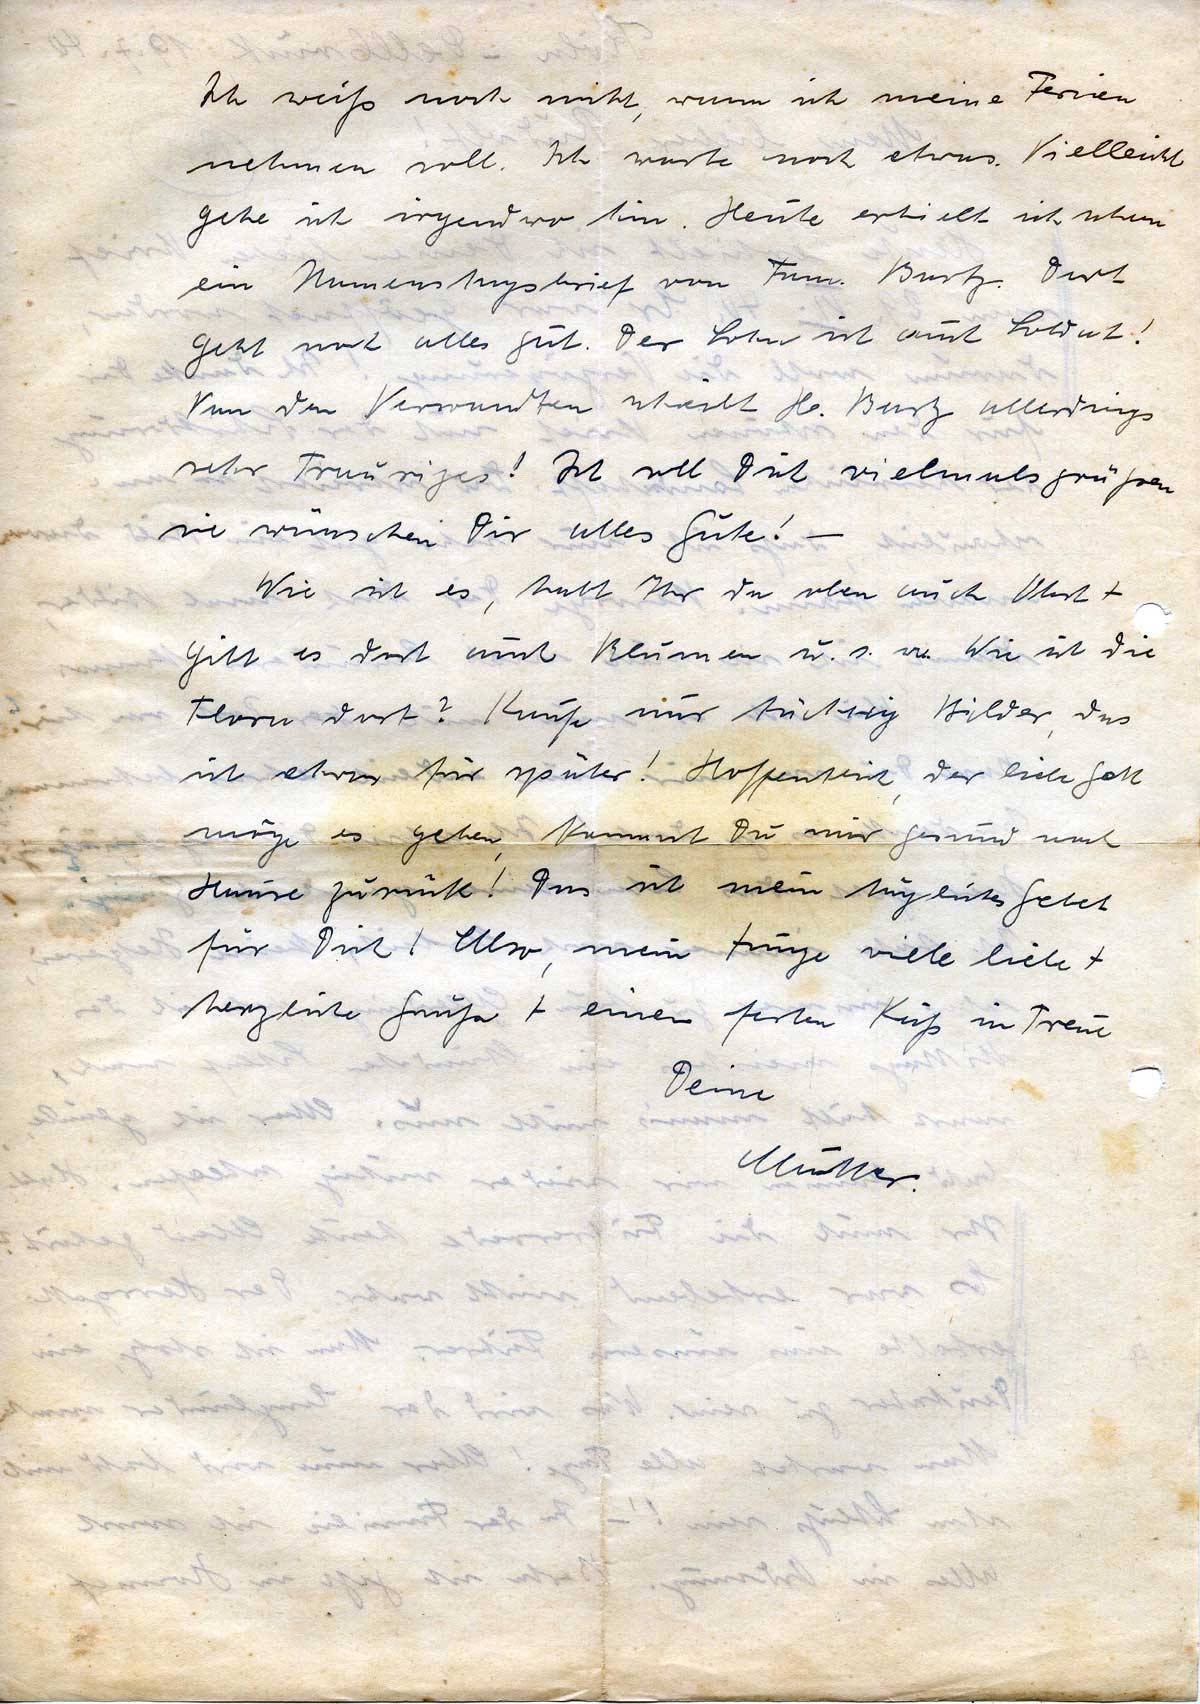 Ich weiß noch nicht, wann ich meine Ferien
nehmen soll. Ich warte noch etwas. Vielleicht
gehe ich irgendwo hin. Heute erhielt ich schon
ein Namenstagsbrief von Fam. Bartz. Dort
geht noch alles gut. Der Sohn ist auch Soldat!
Von den Verwandten schreibt Hr. Bartz allerdings
sehr Trauriges! Ich soll Dich vielmals grüßen
sie wünschen Dir alles Gute! —
Wie ist es, habt Ihr da oben auch Obst +
gibt es dort auch Blumen u. s. w. Wie ist die
Flora dort? Knipse nur tüchtig Bilder, das
ist etwas für später! Hoffentlich, der liebe Gott
möge es geben, kommst Du mir gesund nach
Hause zurück! Das ist mein tägliches Gebet
für Dich! Also, mein Junge viele liebe +
herzliche Grüße + einen festen Kuß in Treue
Deine
Mutter.